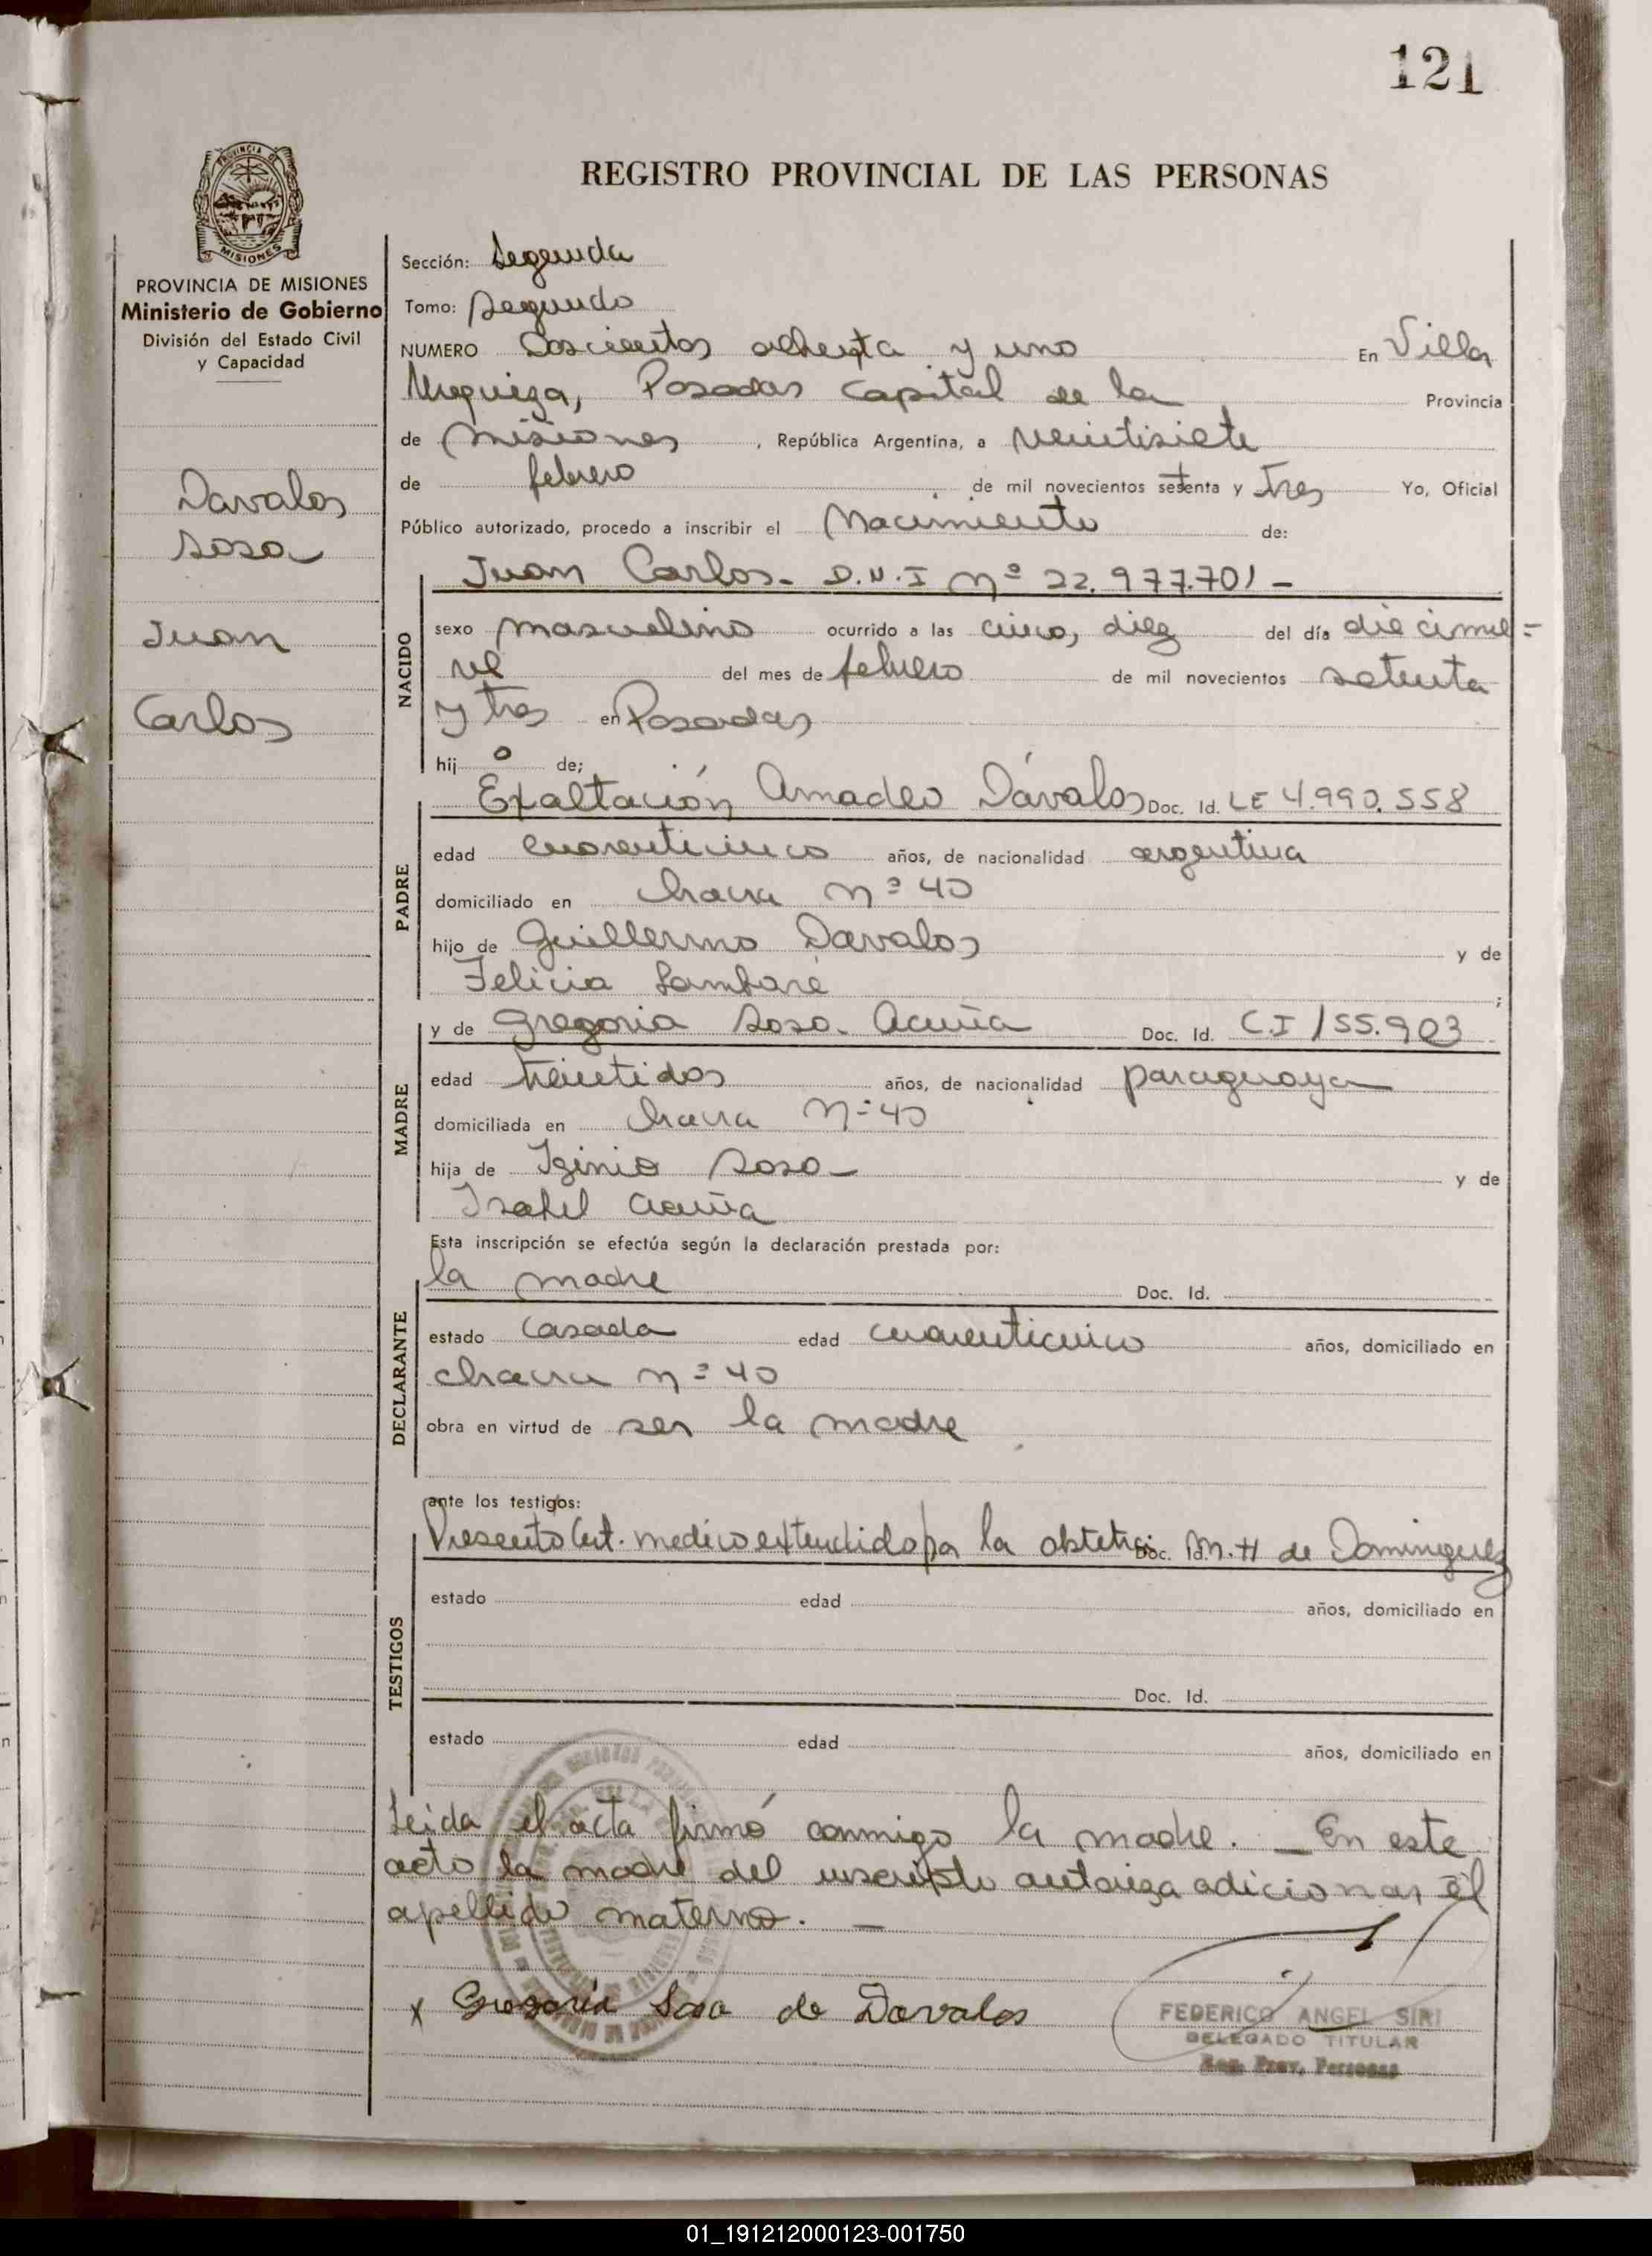 121
REGISTRO PROVINCIAL DE LAS PERSONAS
PROVINCIA DE MISIONES
Ministerio de Gobierno
División del Estado Civil
y Capacidad
Davalos
Sosa
Juan
Carlos
Sección: Segunda
Tomo: Segundo
NUMERO Doscientos ochenta y uno En Villa
Urquiza, Posadas Capital de la Provincia
de Misiones, República Argentina, a veintisiete
de febrero de mil novecientos setenta y tres Yo, Oficial
Público autorizado, procedo a inscribir el Nacimiento de:
NACIDO
Juan Carlos- D.N.I Nº 22.977.701-
sexo masculino ocurrido a las cinco, diez del día diecinue=
ve del mes de febrero de mil novecientos setenta
y tres en Posadas
hijo de;
PADRE
Exaltación Amadeo Dávalos Doc. Id. LE 4.990.558
edad cuarenticinco años, de nacionalidad argentina
domiciliado en chacra Nº 40
hijo de Guillermo Davalos y de
Felicia Lambaré ;
MADRE
y de Gregoria Sosa Acuña Doc. Id. C.I 155.903
edad treintidos años, de nacionalidad paraguaya
domiciliada en chacra Nº 40
hija de Iginio Sosa y de
Isabel Acuña
Esta inscripción se efectúa según la declaración prestada por:
DECLARANTE
la madre Doc. Id.
estado casada edad cuarenticinco años, domiciliado en
chacra Nº 40
obra en virtud de ser la madre
ante los testigos:
TESTIGOS
Presento Cert. medico extendido por la obstetric Doc. Id. M.H de Dominguez
estado edad años, domiciliado en
Doc. Id.
estado edad años, domiciliado en
Leida el acta firmó conmigo la madre. _ En este
acto la madre del inscripto autoriza adicionar el
apellido materno. _
x Gregoria Sosa de Davalos
FEDERICO ANGEL SIRI
DELEGADO TITULAR
Reg. Prov. Personas
01_191212000123-001750